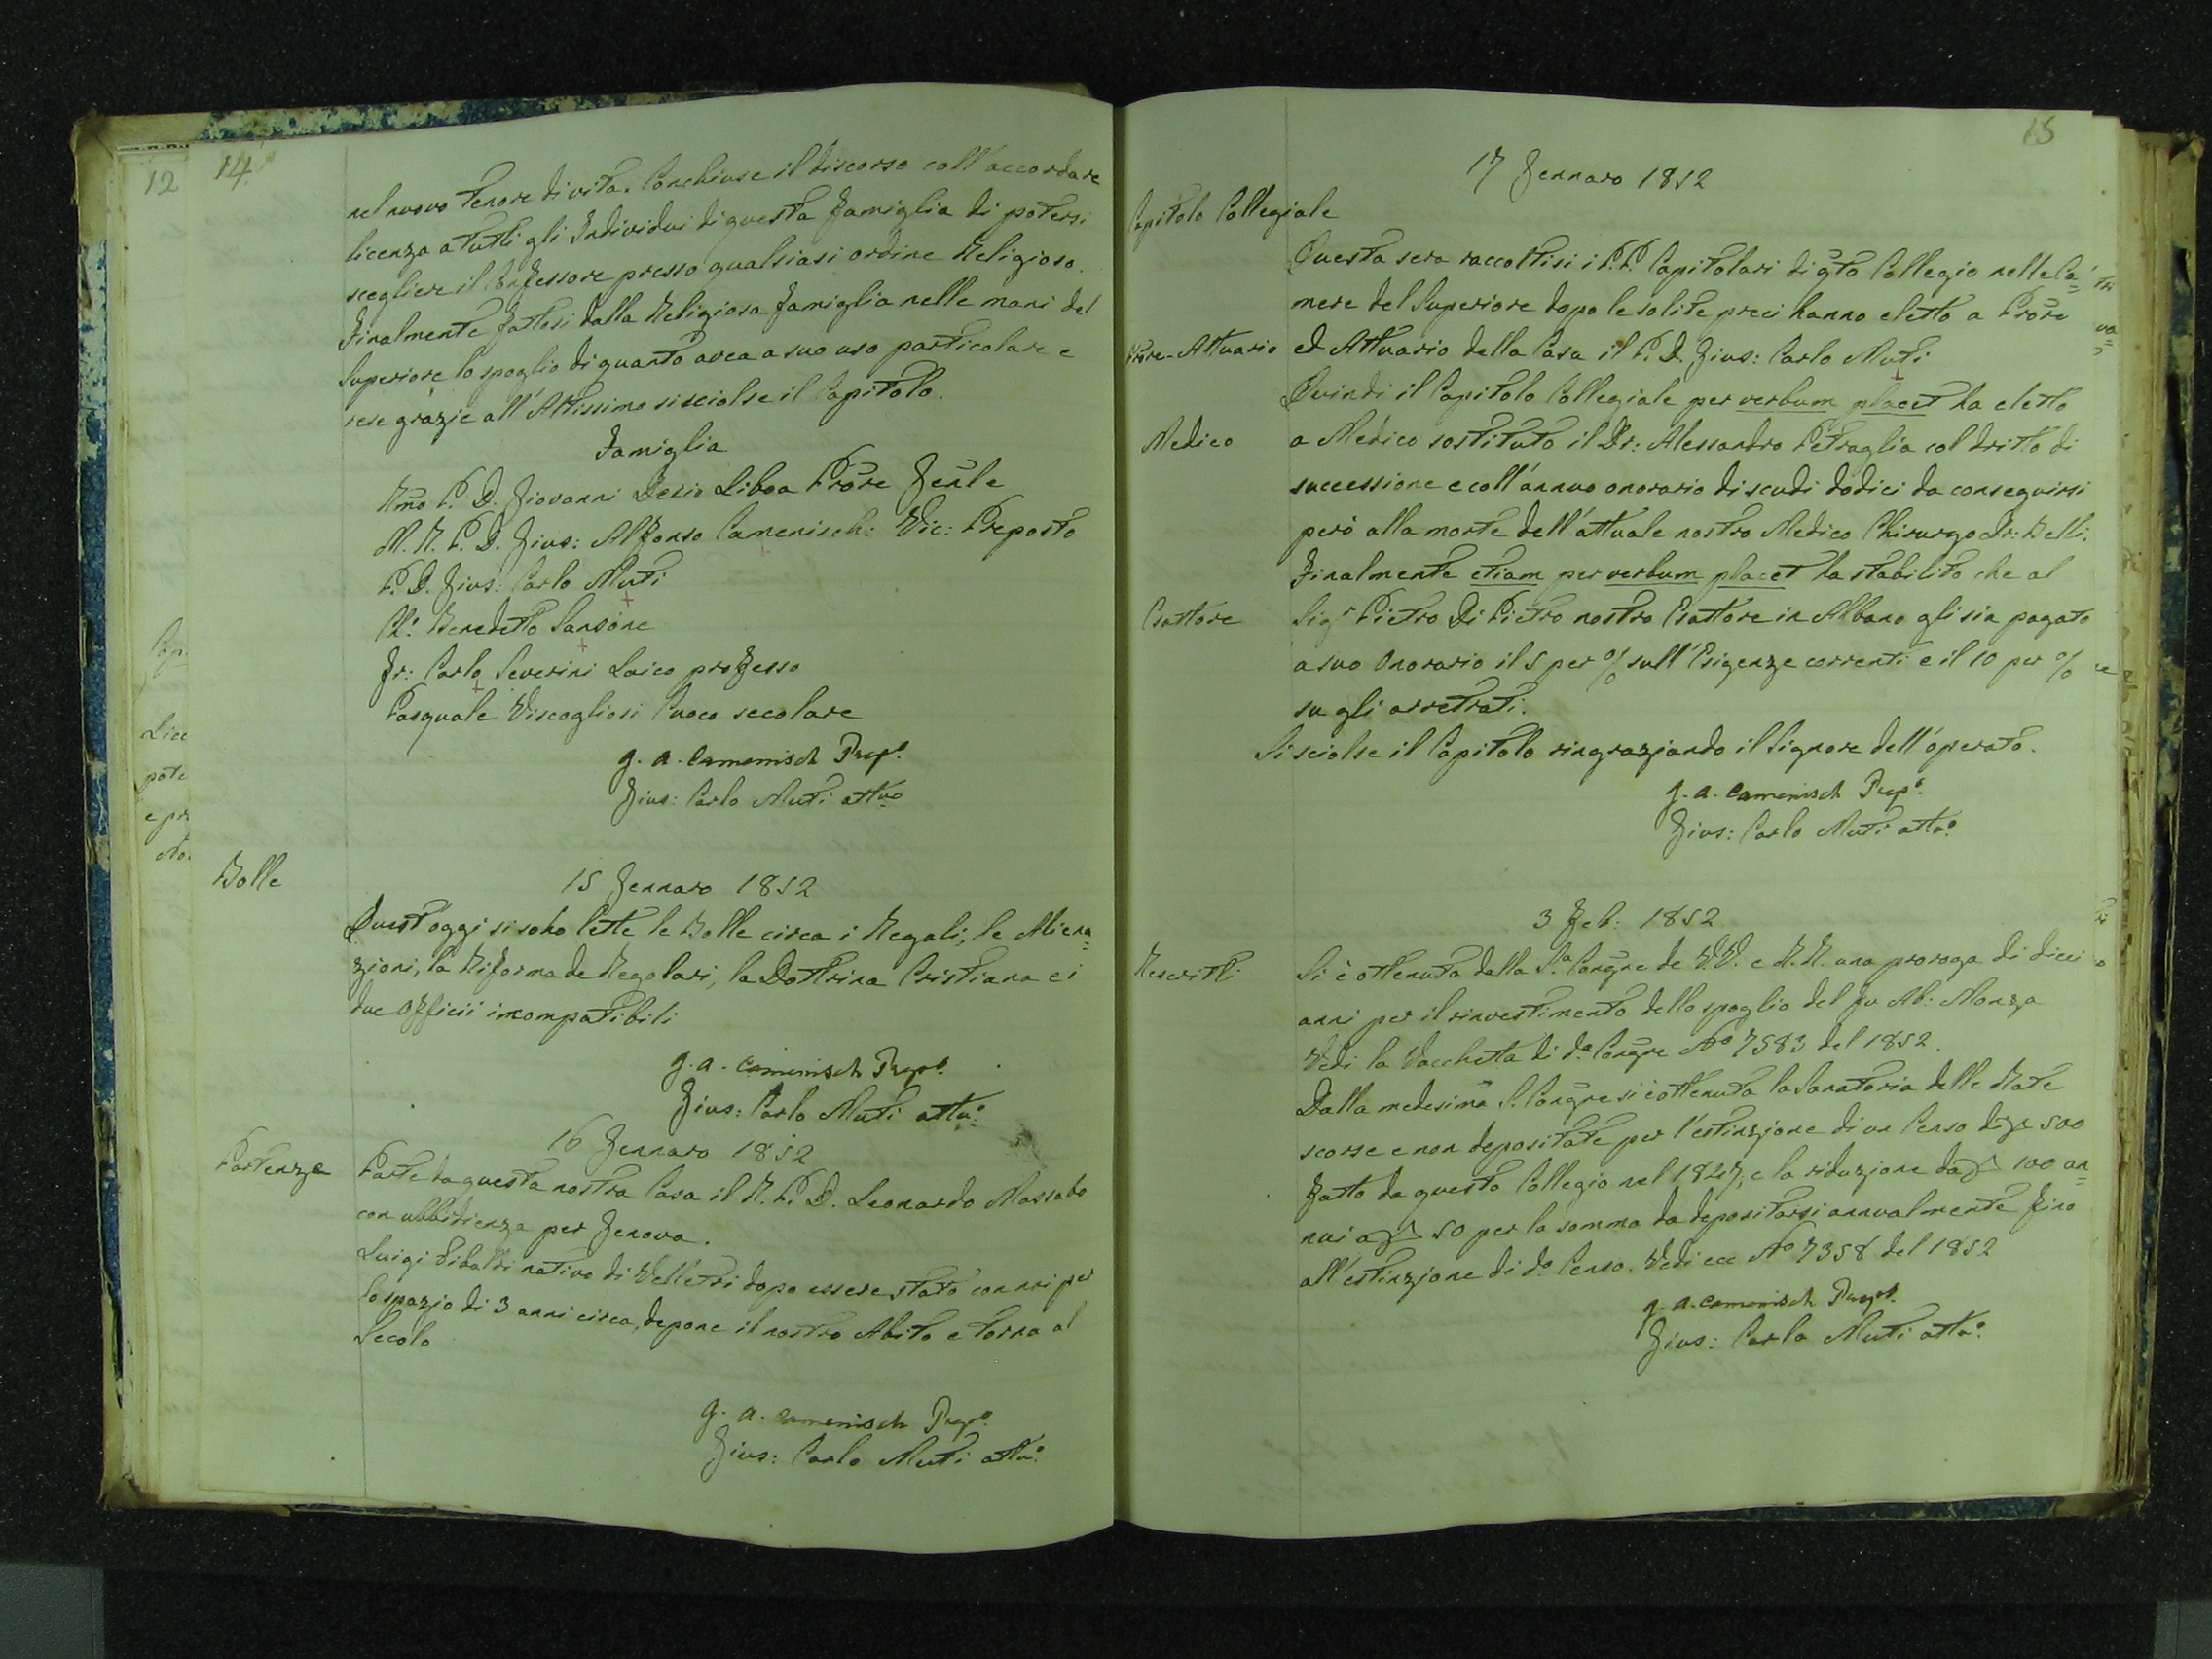 12
14
nel nuovo tenore di vita. Conchiuse il discorso coll'accordare
licenza a tutti gli Individui di questa famiglia di potersi
scegliere il Confessore presso qualsiasi ordine Religioso.
Finalmente fattosi dalla Religiosa famiglia nelle mani del
Superiore lo spoglio di quanto avea a suo uso particolare e
rese grazie all'Altissimo si sciolse il Capitolo.
Famiglia
Rmo P. D. Giovanni Decio Liboa Prõre Genle
M. R. P. D. Gius: Alfonso Camenisch: Vic: Preposto
P. D. Gius: Carlo Muti
Ch: Benedetto Sansone
Fr: Carlo Severini Laico professo
Pasquale Viscogliosi Cuoco secolare
G. A. Camenisch Prepo.
Gius: Carlo Muti attuo
Bolle
15 Gennaro 1852
Quest'oggi si sono lette le Bolle circa i Regali, le Aliena=
zioni, la Riforma de Regolari, la Dottrina Cristiana e i
due officii incompatibili
G. A. Camenisch Prepo.
Gius: Carlo Muti attuo.
16 Gennaro 1852
Partenze
Parte da questa nostra Casa il R. P. D. Leonardo Massabo
con ubbidienza per Genova.
Luigi Tibaldi nativo di Velletri dopo essere stato con noi per
lo spazio di 3 anni circa, depone il nostro Abito e torna al
Secolo
G. A. Camenisch Prepo.
Gius: Carlo Muti attuo.
15
17 Gennaro 1852
Capitolo Collegiale
Questa sera raccoltisi i P.P. Capitolari di qto Collegio nelle Ca=
mere del Superiore dopo le solite preci hanno eletto a Prõre
Prõre-Attuario
ed Attuario della Casa il P. D. Gius: Carlo Muti
Quindi il Capitolo Collegiale per verbum placet ha eletto
Medico
a Medico sostituto il Dr: Alessandro Petraglia col dritto di
successione e coll'annuo onorario di scudi dodici da conseguirsi
però alla morte dell'attuale nostro Medico Chirurgo Dr: Belli.
Finalmente etiam per verbum placet ha stabilito che al
Esattore
Sigr Pietro Di Pietro nostro Esattore in Albano gli sia pagato
a suo Onorario il 5 per % sull'Esigenze correnti e il 10 per %
su gli arretrati.
Si sciolse il Capitolo ringraziando il Signore dell'operato.
G. A. Camenisch Prepo.
Gius: Carlo Muti attuo.
3 Feb: 1852
Rescritti
Si è ottenuta dalla Sa. Congne de V.V. e R.R. una proroga di dieci
anni per il rinvestimento dello spoglio del fu Ab: Monza
Vedi la Vacchetta di da Congne No 7583 del 1852.
Dalla medesima S. Congne si è ottenuta la Sanatoria delle Rate
scorse e non depositate per l'estinzione di un Censo di 500
fatto da questo Collegio nel 1827, e la riduzione da 100 an=
nui a 50 per la somma da depositarsi annualmente fino
all'estinzione di do Censo. Vedi ecc No 7358 del 1852
G. A. Camenisch Prepo.
Gius: Carlo Muti attuo.